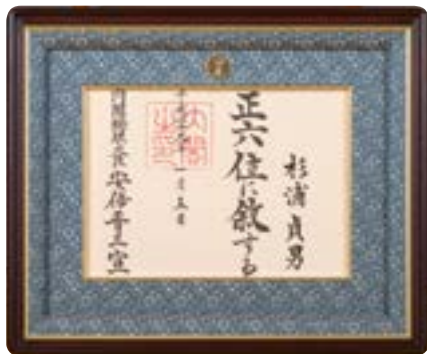 杉浦貞男
正六位に叙する
一月五日
内閣総理大臣安倍晋三宣